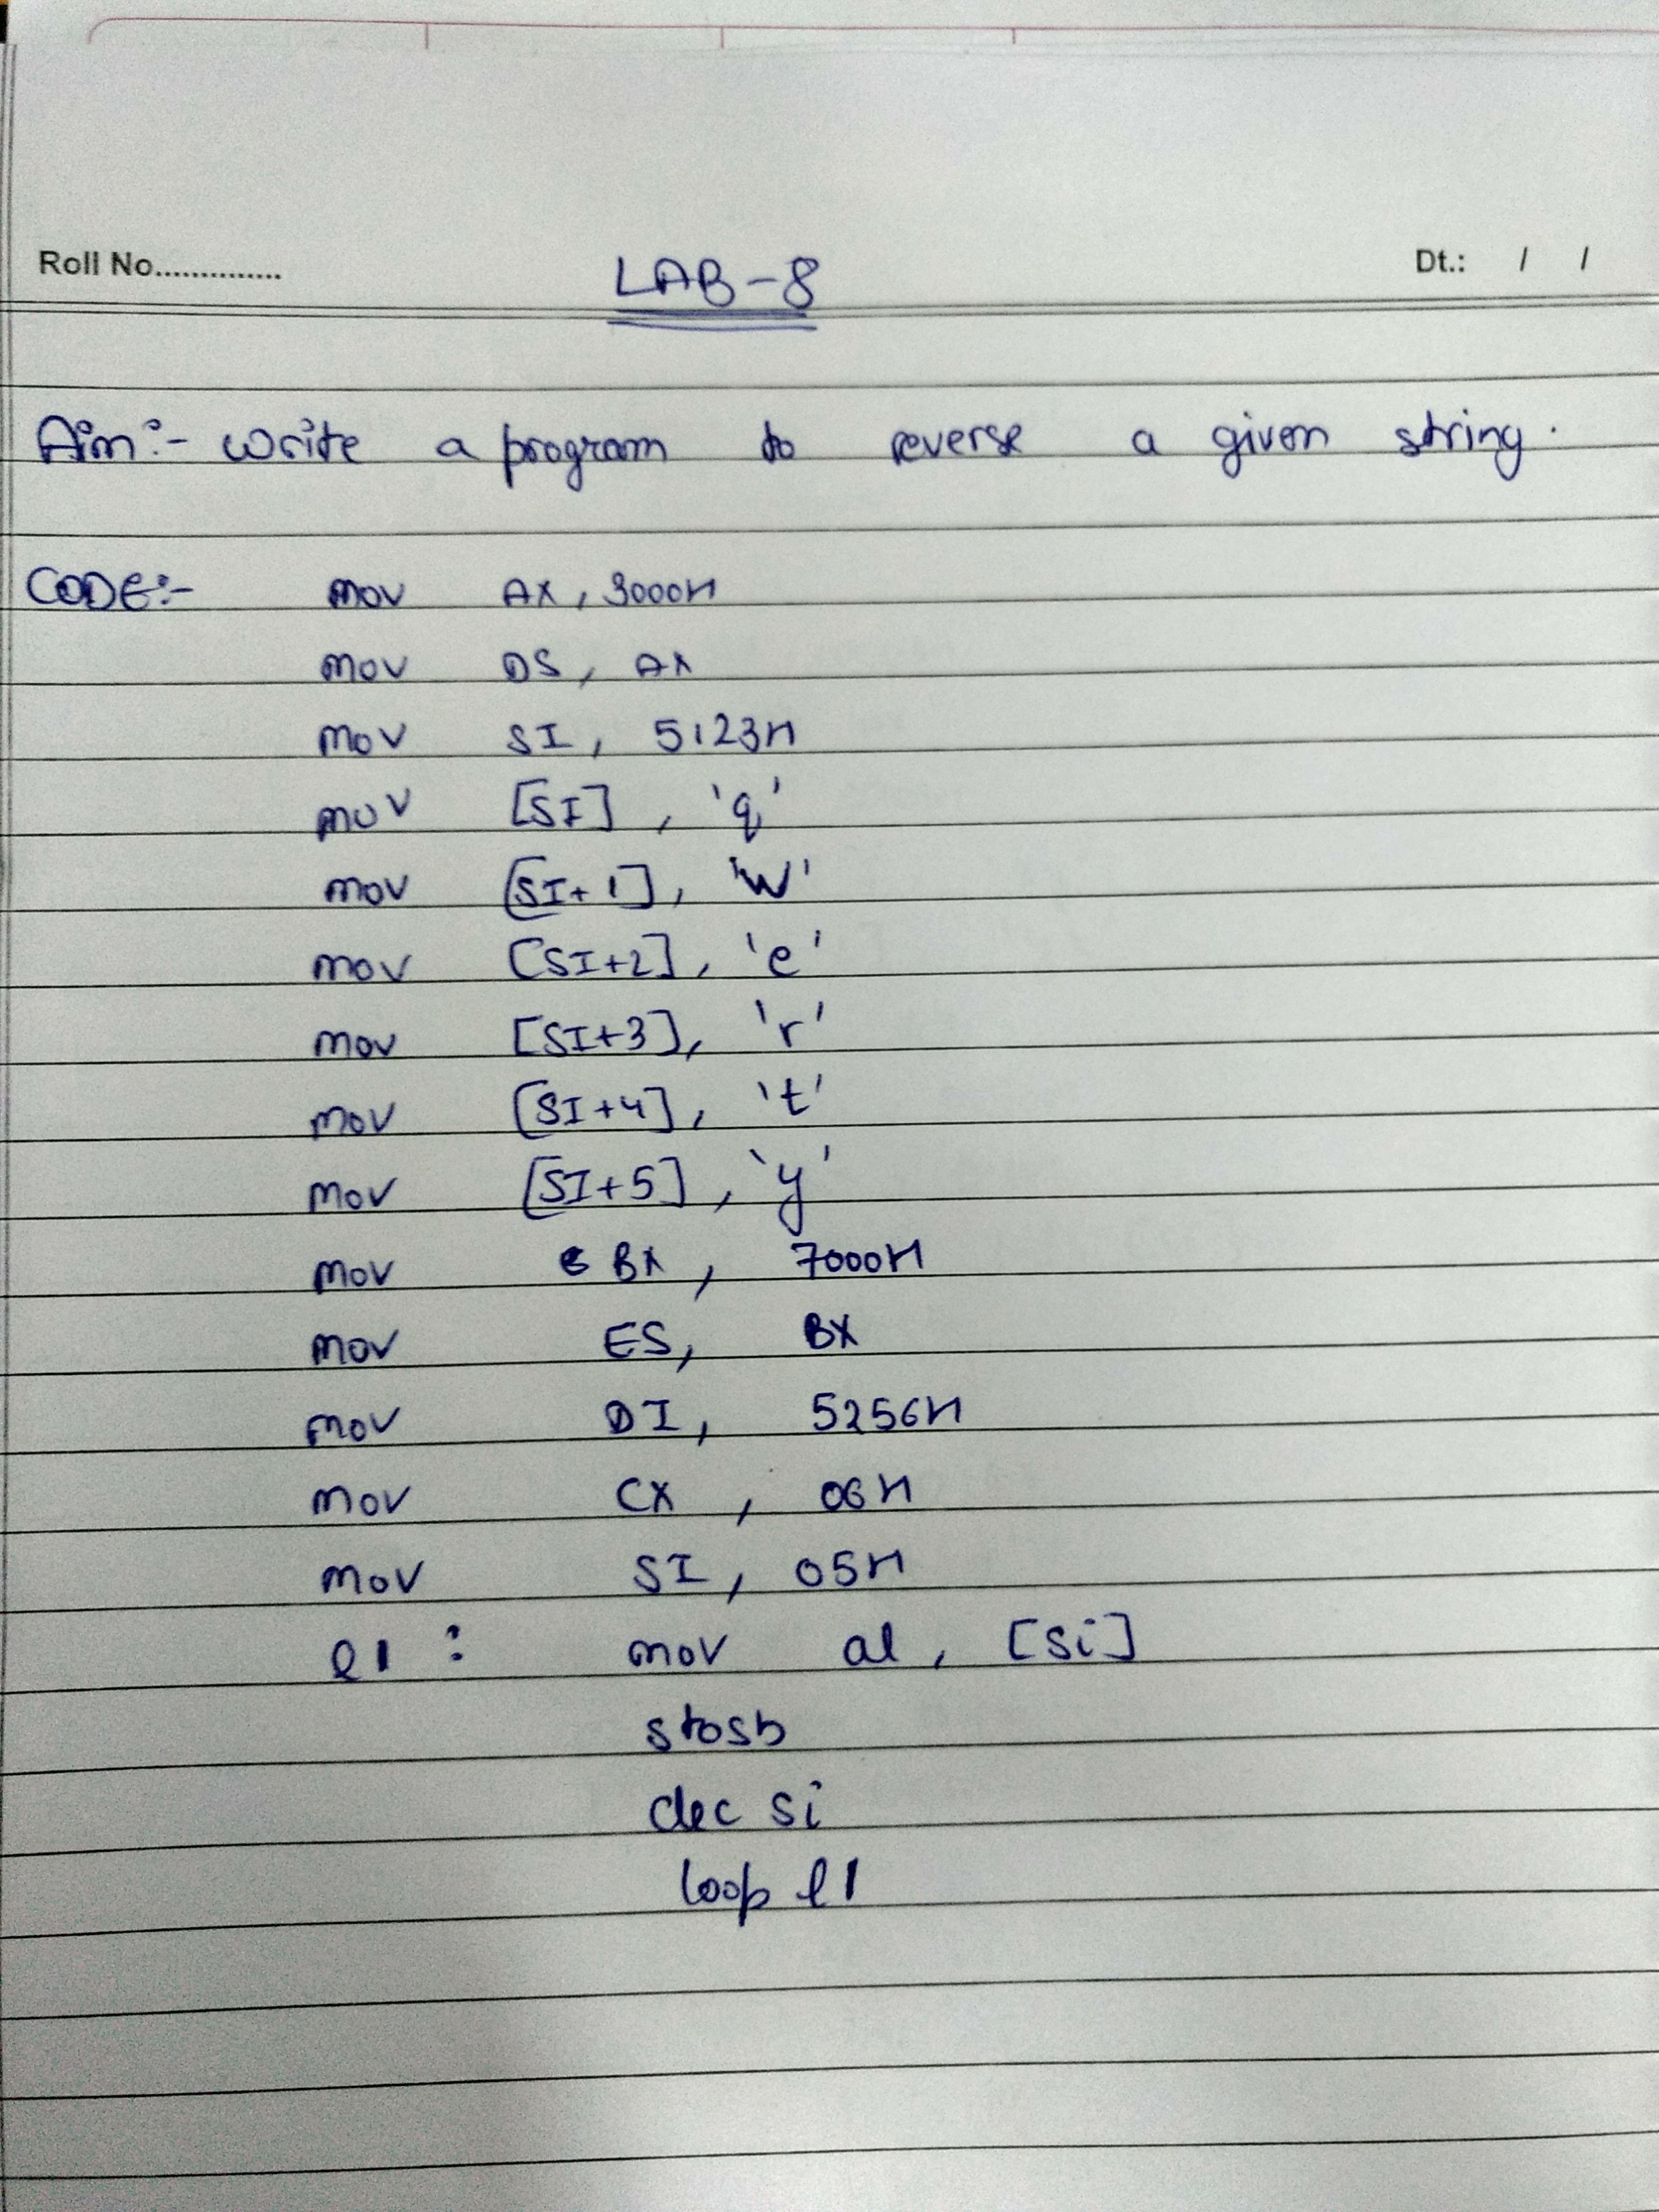 Roll No.............. LAB-8 Dt.: / /
Aim:- write a program to reverse a given string.
CODE:- mov AX, 3000H
mov DS, AX
mov SI, 5123H
mov [SI], 'q'
mov [SI+1], 'w'
mov [SI+2], 'e'
mov [SI+3], 'r'
mov [SI+4], 't'
mov [SI+5], 'y'
mov BX, 7000H
mov ES, BX
mov DI, 5256H
mov CX, 06H
mov SI, 05H
l1 : mov al, [si]
stosb
dec si
loop l1